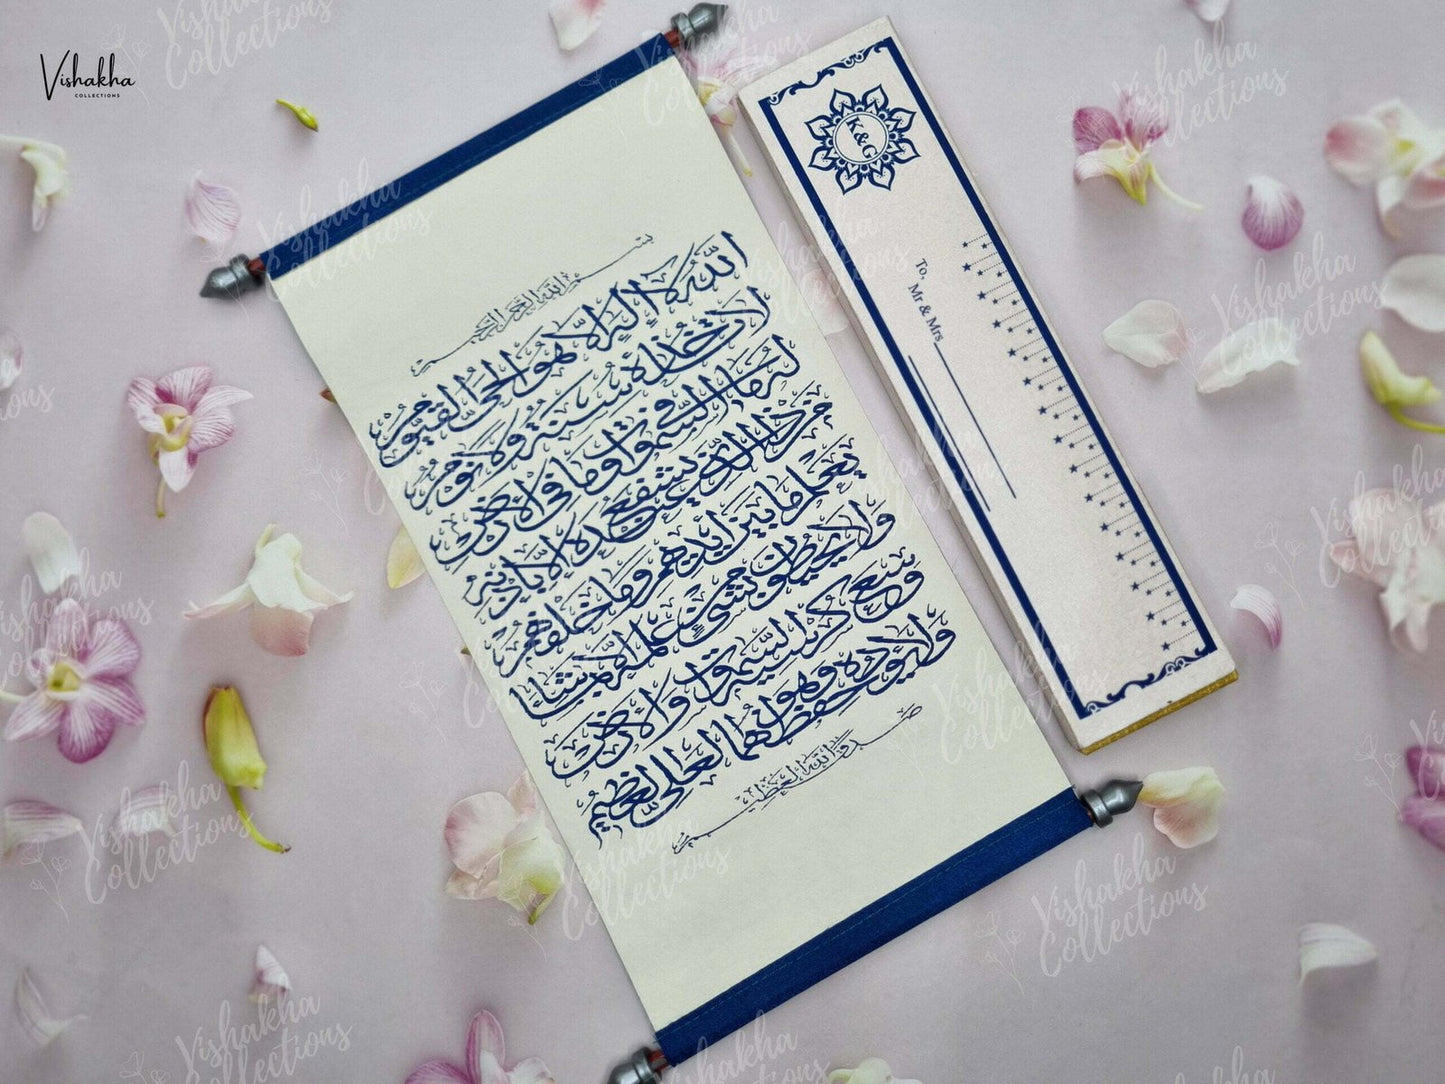 Vishakha
COLLECTIONS
بسم الله الرحمن الرحيم
الله لا إله إلا هو الحي القيوم
لا تأخذه سنة ولا نوم
له ما في السموات وما في الأرض
من ذا الذي يشفع عنده إلا بإذنه
يعلم ما بين أيديهم وما خلفهم
ولا يحيطون بشيء من علمه إلا بما شاء
وسع كرسيه السموات والأرض
ولا يؤده حفظهما وهو العلي العظيم
صدق الله العظيم
K&G
To,
Mr & Mrs